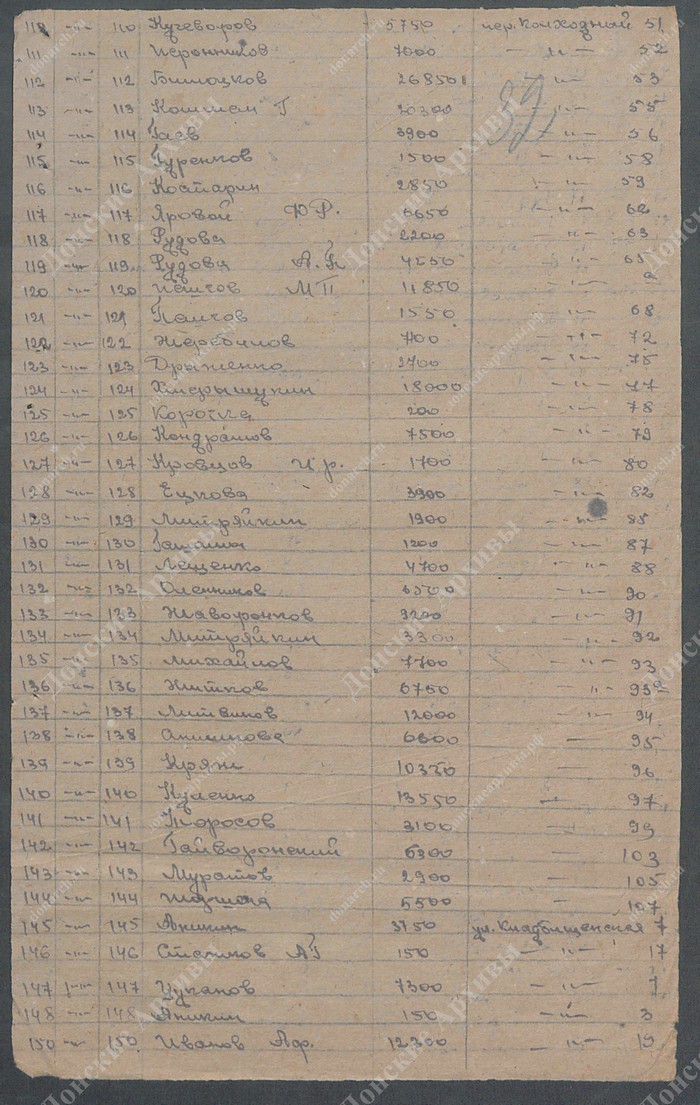 110 -"- 110 Кучеворов 5750 пер. Колходный 51
111 -"- 111 7000 -"- 52
112 -"- 112 Билоцков 26850 -"- 53
113 -"- 113 20300 -"- 55
114 -"- 114 Гаев 3900 -"- 56
115 -"- 115 Гуренков 1500 -"- 58
116 -"- 116 Костарин 2850 -"- 59
117 -"- 117 Яровой 6650 -"- 62
118 -"- 118 Рудова 2200 -"- 63
119 -"- 119 Рудова 4250 -"- 65
120 -"- 120 МП 11850 -"-
121 -"- 121 1550 -"- 68
122 -"- 122 Жеребилов 7100 -"- 72
123 -"- 123 Драженко 2700 -"- 75
124 -"- 124 18000 -"- 77
125 -"- 125 Коротка 200 -"- 78
126 -"- 126 Кондрашов 7500 -"- 79
127 -"- 127 Кровцов 1700 -"- 80
128 -"- 128 Ецкова 3900 -"- 82
129 -"- 129 Митряйкин 1900 -"- 85
130 -"- 130 1200 -"- 87
131 -"- 131 Лещенко 4700 -"- 88
132 -"- 132 Оленников 6500 -"- 90
133 -"- 133 Жаворонков 9200 -"- 91
134 -"- 134 Митряйкин 3300 -"- 92
135 -"- 135 Михайлов 7700 -"- 93
136 -"- 136 Житков 6750 -"- 93а
137 -"- 137 Литвинов 12000 -"- 94
138 -"- 138 Анисимова 6800 - 95
139 -"- 139 Кряж 10350 - 96
140 -"- 140 Куленко 13550 - 97
141 -"- 141 3100 - 99
142 -"- 142 Гайворонский 6300 - 103
143 -"- 143 Муратов 2900 - 105
144 -"- 144 5500 - 107
145 -"- 145 Аникин 3150 ул. Кладбищенская 7
146 -"- 146 150 -"- 17
147 -"- 147 Цуканов 7300 -"- 1
148 -"- 148 Аникин 150 -"- 3
150 -"- 150 Иванов Аф. 12300 -"- 19